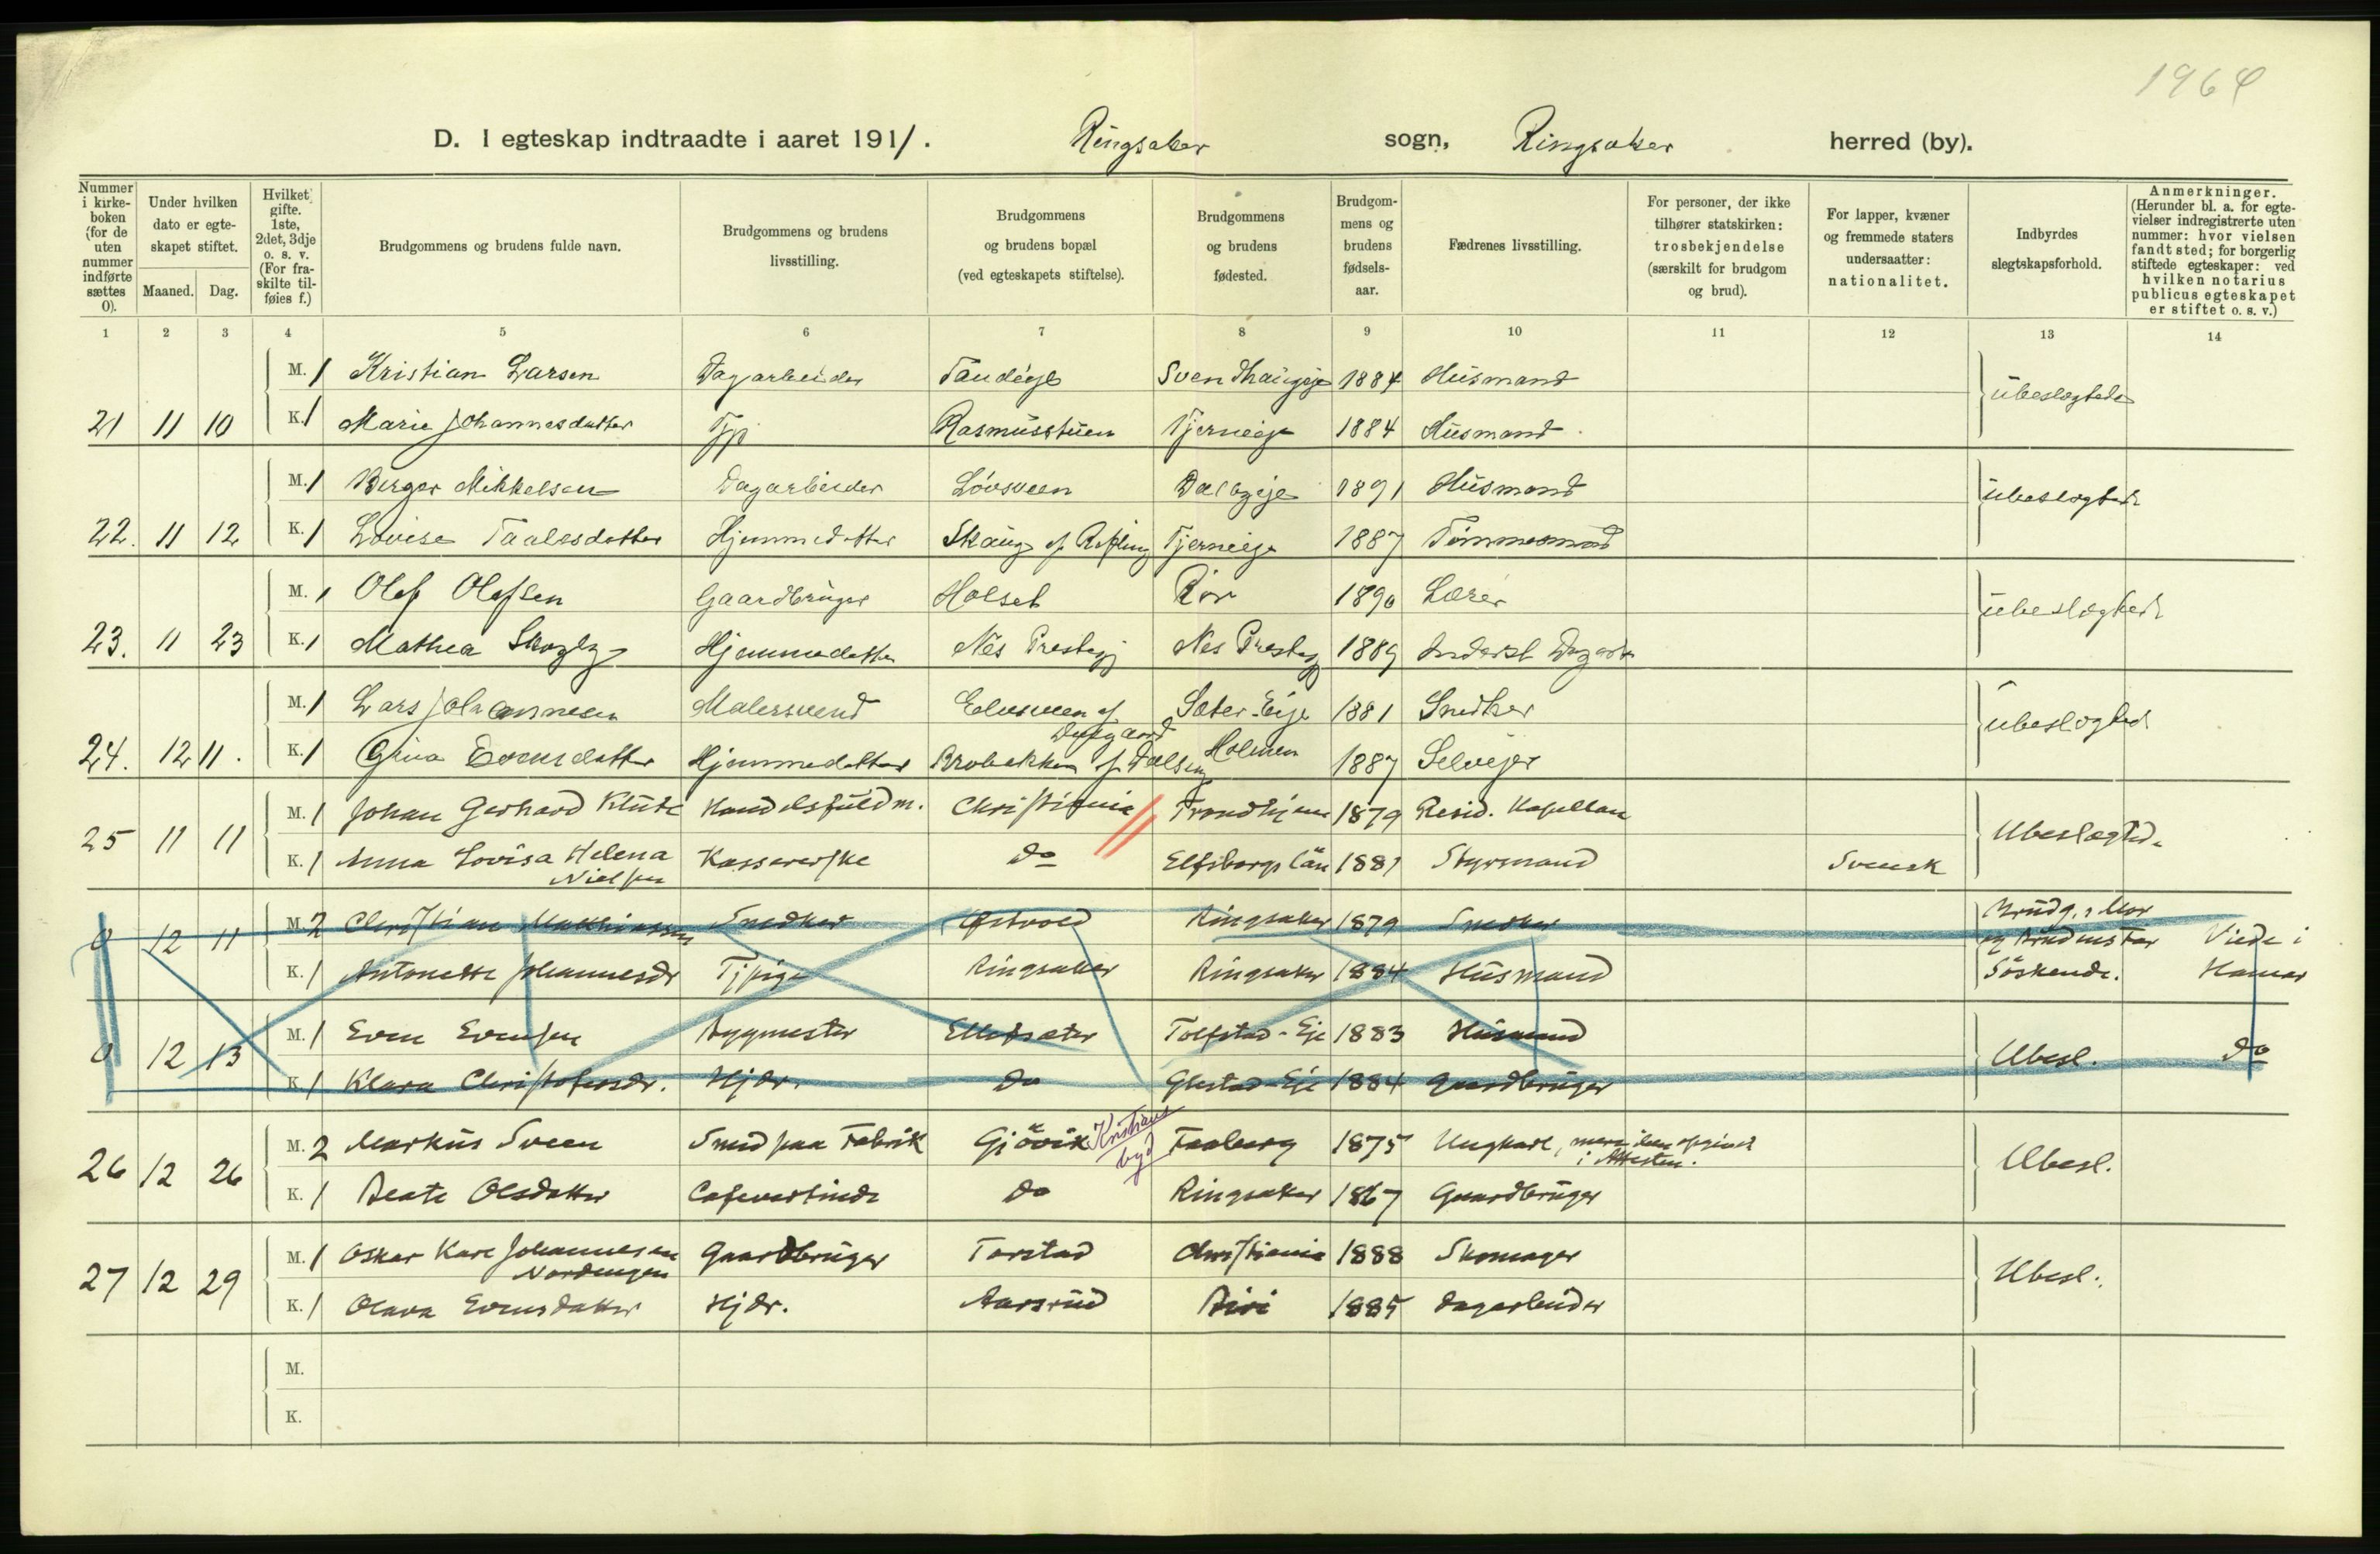 1964
D. I egteskap indtraadte i aaret 1911. Ringsaker sogn, Ringsaker herred (by).
Nummer i kirke-boken (for de uten nummer indførte sættes 0).
Under hvilken dato er egte-skapet stiftet.
Maaned. Dag.
Hvilket gifte. 1ste, 2det, 3dje o. s. v. (For fra-skilte til-føies f.)
Brudgommens og brudens fulde navn.
Brudgommens og brudens livsstilling.
Brudgommens og brudens bopæl (ved egteskapets stiftelse).
Brudgommens og brudens fødested.
Brudgom-mens og brudens fødsels-aar.
Fædrenes livsstilling.
For personer, der ikke tilhører statskirken: trosbekjendelse (særskilt for brudgom og brud).
For lapper, kvæner og fremmede staters undersaatter: nationalitet.
Indbyrdes slegtskapsforhold.
Anmerkninger. (Herunder bl. a. for egte-vielser indregistrerte uten nummer: hvor vielsen fandt sted; for borgerlig stiftede egteskaper: ved hvilken notarius publicus egteskapet er stiftet o. s. v.)
1 2 3 4 5 6 7 8 9 10 11 12 13 14
M. 1 Kristian Larsen Dagarbeider 1884 Husmand ubeslægtede
21 11 10 K. 1 Marie Johannesdatter Tjp. Rasmusstuen Tjerneeje 1884 Husmand
M. 1 Birger Mikkelsen Dagarbeider Lövsveen 1891 Husmand ubeslægtede
22. 11 12 K. 1 Lovise Taalesdatter Hjemmedatter Skaug Tjerneeje 1887 Tömmermand
M. 1 Olef Olefsen Gaardbruger Holset Rör 1890 Lærer ubeslægtede
23. 11 23 K. 1 Mathea Skogly Hjemmedatter Nes Prestegj Nes Prestegj 1889
M. 1 Lars Johannesen Malersvend Sæter-Eje 1881 Snedker ubeslægtede
24. 12 11. K. 1 Gina Evensdatter Hjemmedatter Brobakken Holmen 1887 Selvejer
M. 1 Johan Gerhard Klüte Handelsfuldm. Christiania Trondhjem 1879 Resid. Kapellan Ubeslægted.
25 11 11 K. 1 Anna Lovisa Helena Nielsen Kassererske do Elfsborgs län 1881 Styrmand Svensk
M. 2 Christian Matthiassen Snedker Østvold Ringsaker 1879 Snedker Brudg.s Mor og Brudens Far Söskende. Viede i Hamar
0 12 11 K. 1 Antonette Johannesdr Tjpige Ringsaker Ringsaker 1884 Husmand
M. 1 Even Evensen Bygmester Ellevsæter Tolfstad-Eje 1883 Husmand Ubesl. do
0 12 13 K. 1 Klara Christofersdr. Hjdr. do Gustad-Eje 1884 Gaardbruger
M. 2 Markus Sveen Smed paa Fabrik Gjövik Kristians byd Faaberg 1875 Ungkarl, mere ikke opgivet i Attesten. Ubesl.
26 12 26 K. 1 Beate Olsdatter Cafevertinde do Ringsaker 1867 Gaardbruger
M. 1 Oskar Karl Johannesen Nordengen Gaardbruger Torstad Christiania 1888 Skomager Ubesl.
27 12 29 K. 1 Olava Evensdatter Hjdr. Aarsrud Biri 1885 Dagarbeider
M.
K.